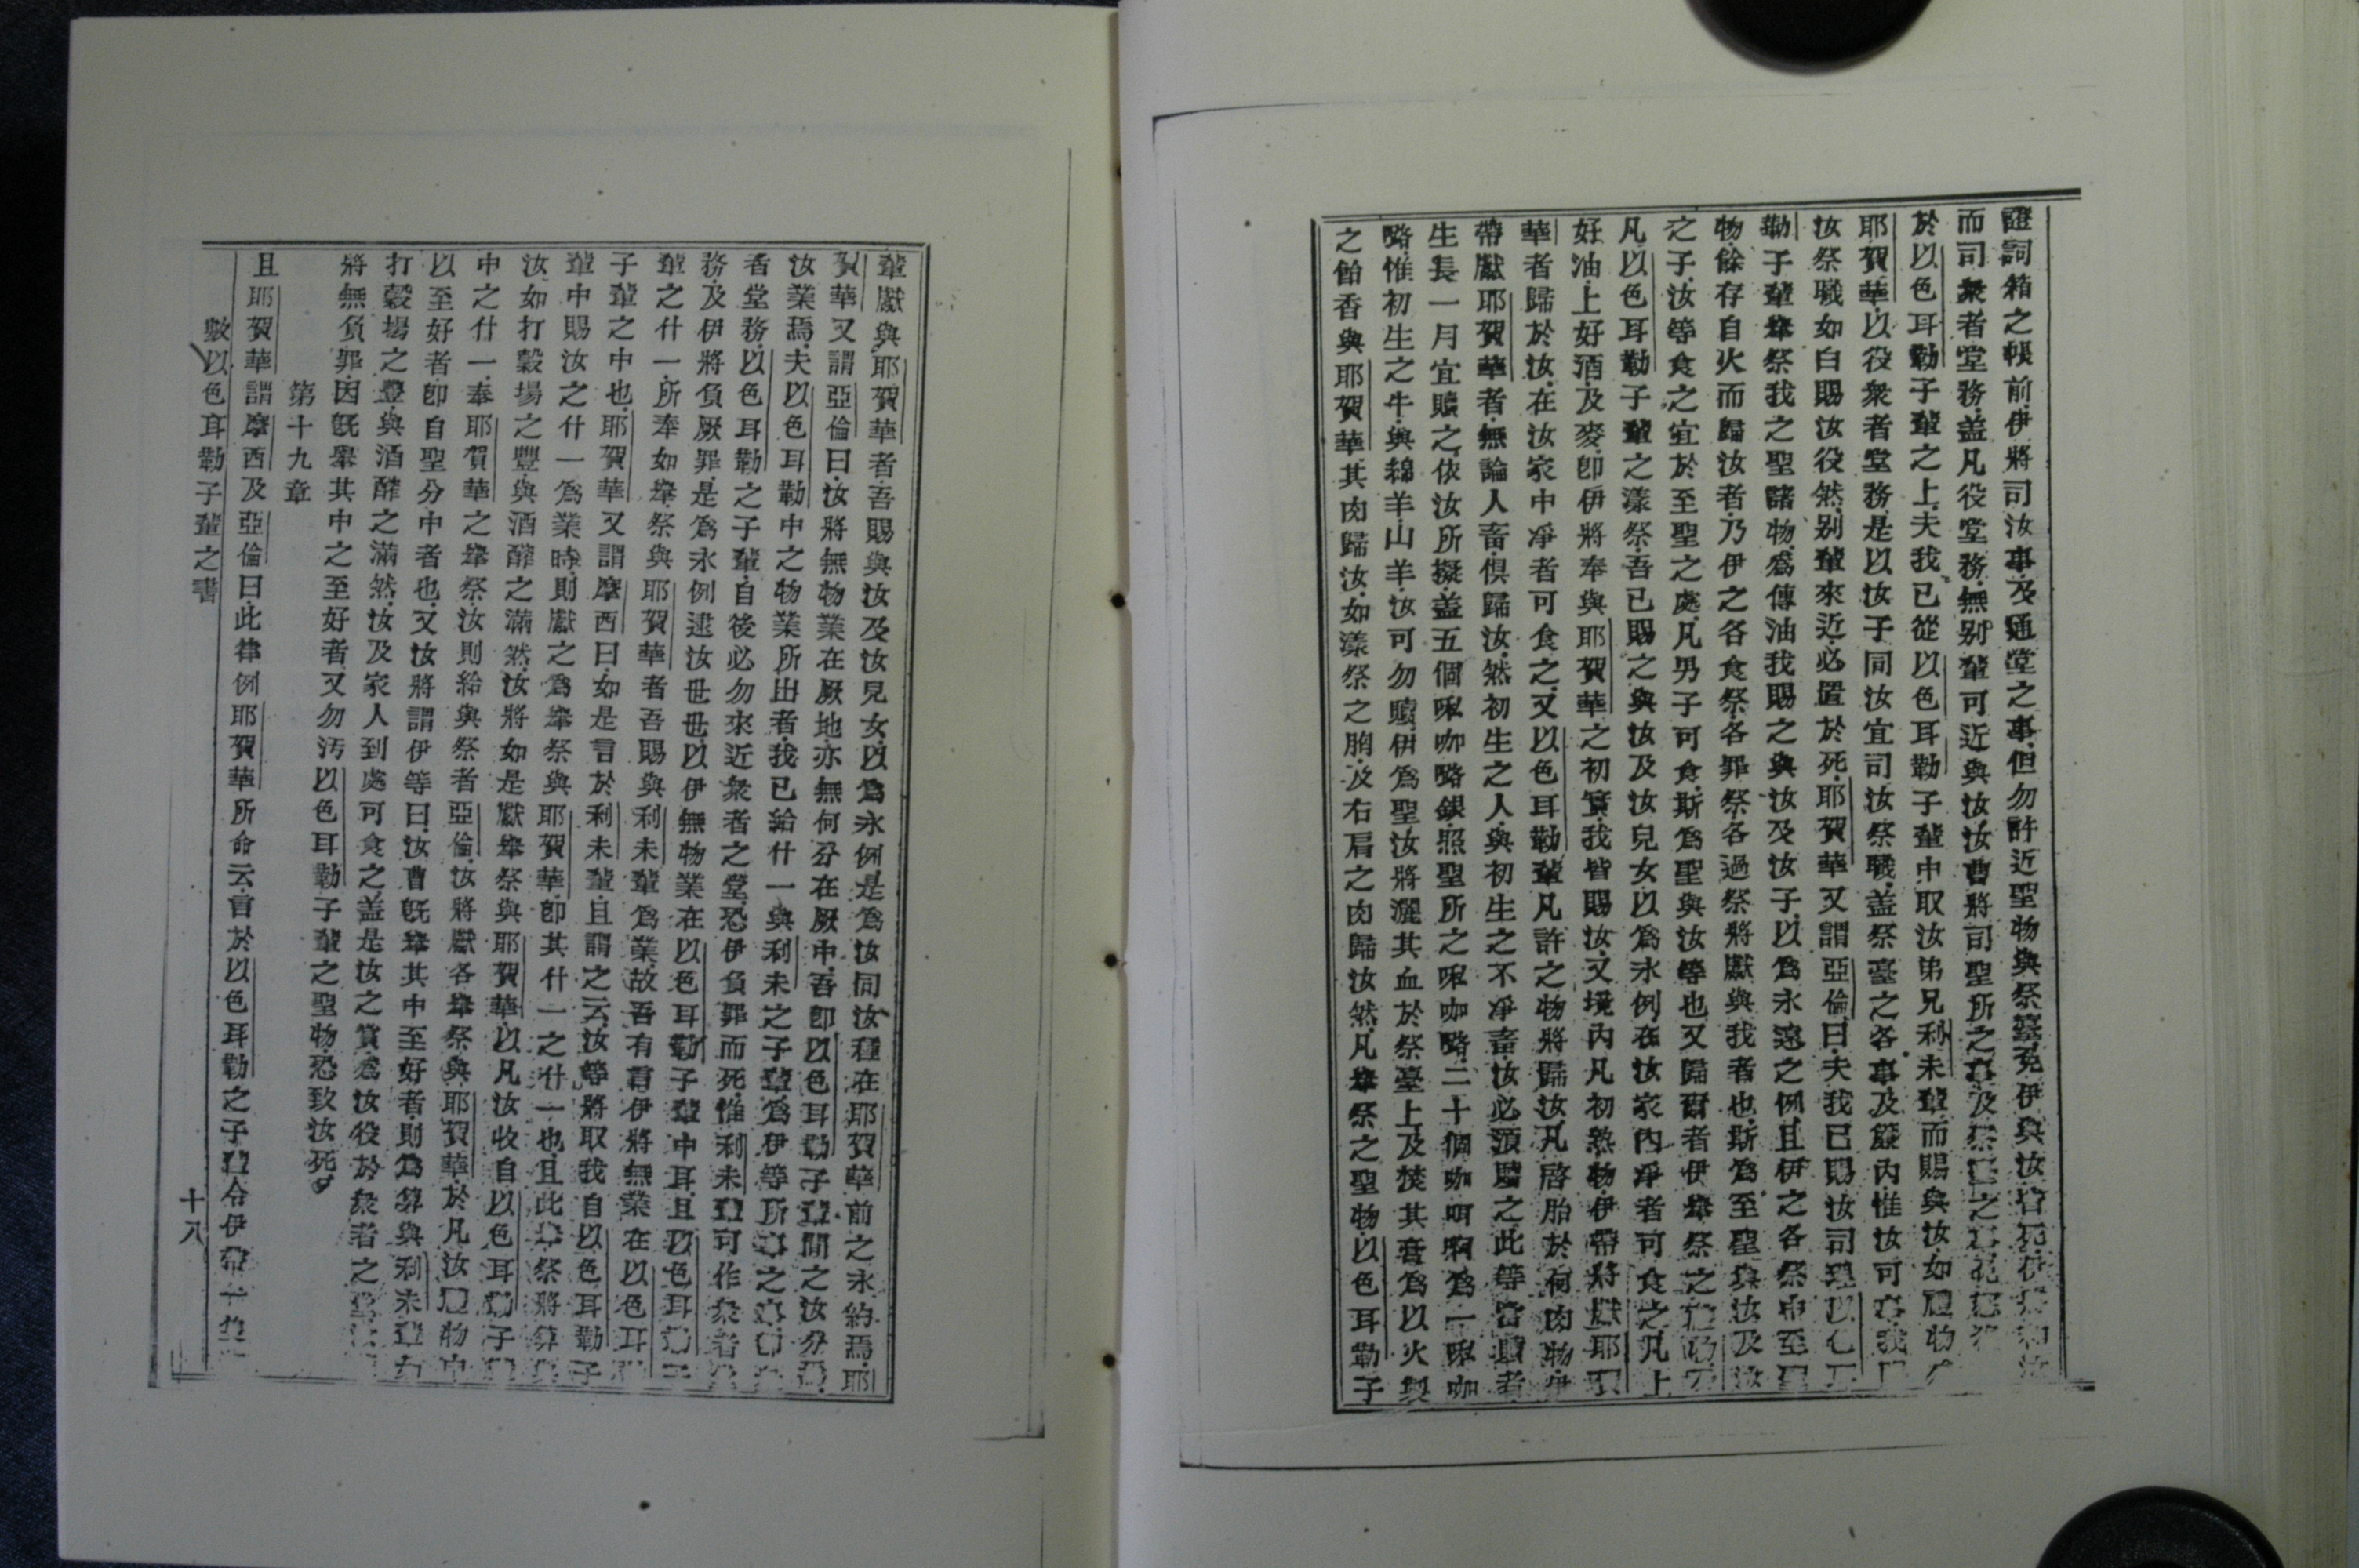 證詞箱之帳前伊將司汝事及通堂之事但勿許近聖物與祭臺免伊與汝皆死
而司衆者堂務蓋凡役堂務無别輩可近與汝汝曹將司聖所之事及祭臺之
於以色耳勒子輩之上夫我已從以色耳勒子輩中取汝弟兄利未輩而賜與汝如禮物
耶賀華以役衆者堂務是以汝子同汝宜司汝祭職蓋祭臺之各事及簾內惟汝可
汝祭職如白賜汝役然别輩來近必置於死耶賀華又謂亞倫曰夫我已賜汝司理以
勒子輩舉祭我之聖諸物爲傅油我賜之與汝及汝子以爲永遠之例且伊之各祭中至
物餘存自火而歸汝者乃伊之各食祭各罪祭各過祭將獻與我者也斯爲至聖與汝及汝
之子汝等食之宜於至聖之處凡男子可食斯爲聖與汝等也又歸爾者伊舉祭之
凡以色耳勒子輩之漾祭吾已賜之與汝及汝兒女以爲永例在汝家內淨者可食之凡上
好油上好酒及麥卽伊將奉與耶賀華之初實我皆賜汝又境內凡初熟物伊帶將獻耶
華者歸於汝在汝家中淨者可食之又以色耳勒輩凡許之物將歸汝凡啓胎於何肉物伊
帶獻耶賀華者無論人畜俱歸汝然初生之人與初生之不淨畜汝必須贖之此等當贖者
生長一月宜贖之依汝所擬蓋五個㖠咖略銀照聖所之㖠咖略二十個咖呵啊爲一㖠咖
略惟初生之牛與綿羊山羊汝可勿贖伊爲聖汝將灑其血於祭臺上及焚其膏爲以火製
之飴香與耶賀華其肉歸汝如漾祭之胸及右肩之肉歸汝然凡舉祭之聖物以色耳勒子
輩獻與耶賀華者吾賜與汝及汝兒女以爲永例是爲汝同汝種在耶賀華前之永約焉耶
賀華又謂亞倫曰汝將無物業在厥地亦無何分在厥中吾卽以色耳勒子輩間之汝分
汝業焉夫以色耳勒中之物業所出者我已給什一與利未之子輩爲伊等所
者堂務以色耳勒之子輩自後必勿來近衆者之堂恐伊負罪而死惟利未輩可作衆者
務及伊將負厥罪是爲永例逮汝世世以伊無物業在以色耳勒子輩中耳且以色耳
輩之什一所奉如舉祭與耶賀華者吾賜與利未輩爲業故吾有言伊將無業在以色耳
子輩之中也耶賀華又謂摩西曰如是言於利未輩且謂之云汝等將取我自以色耳勒子
輩中賜汝之什一爲業時則獻之爲舉祭與耶賀華卽其什一之什一也且此舉祭將算
汝如打穀場之豐與酒醡之滿然汝將如是獻舉祭與耶賀華以凡汝收自以色耳勒子
中之什一奉耶賀華之舉祭汝則給與祭者亞倫汝將獻各舉祭與耶賀華於凡汝禮物中
以至好者卽自聖分中者也又汝將謂伊等曰汝曹既舉其中至好者則爲算與利未輩如
打穀場之豐與酒醡之滿然汝及家人到處可食之蓋是汝之賞爲汝役於衆者之
將無負罪因既舉其中之至好者又勿汚以色耳勒子輩之聖物恐致汝死
第十九章
且耶賀華謂摩西及亞倫曰此律例耶賀華所命云言於以色耳勒之子輩令伊帶
數以色耳勒子輩之書 十八